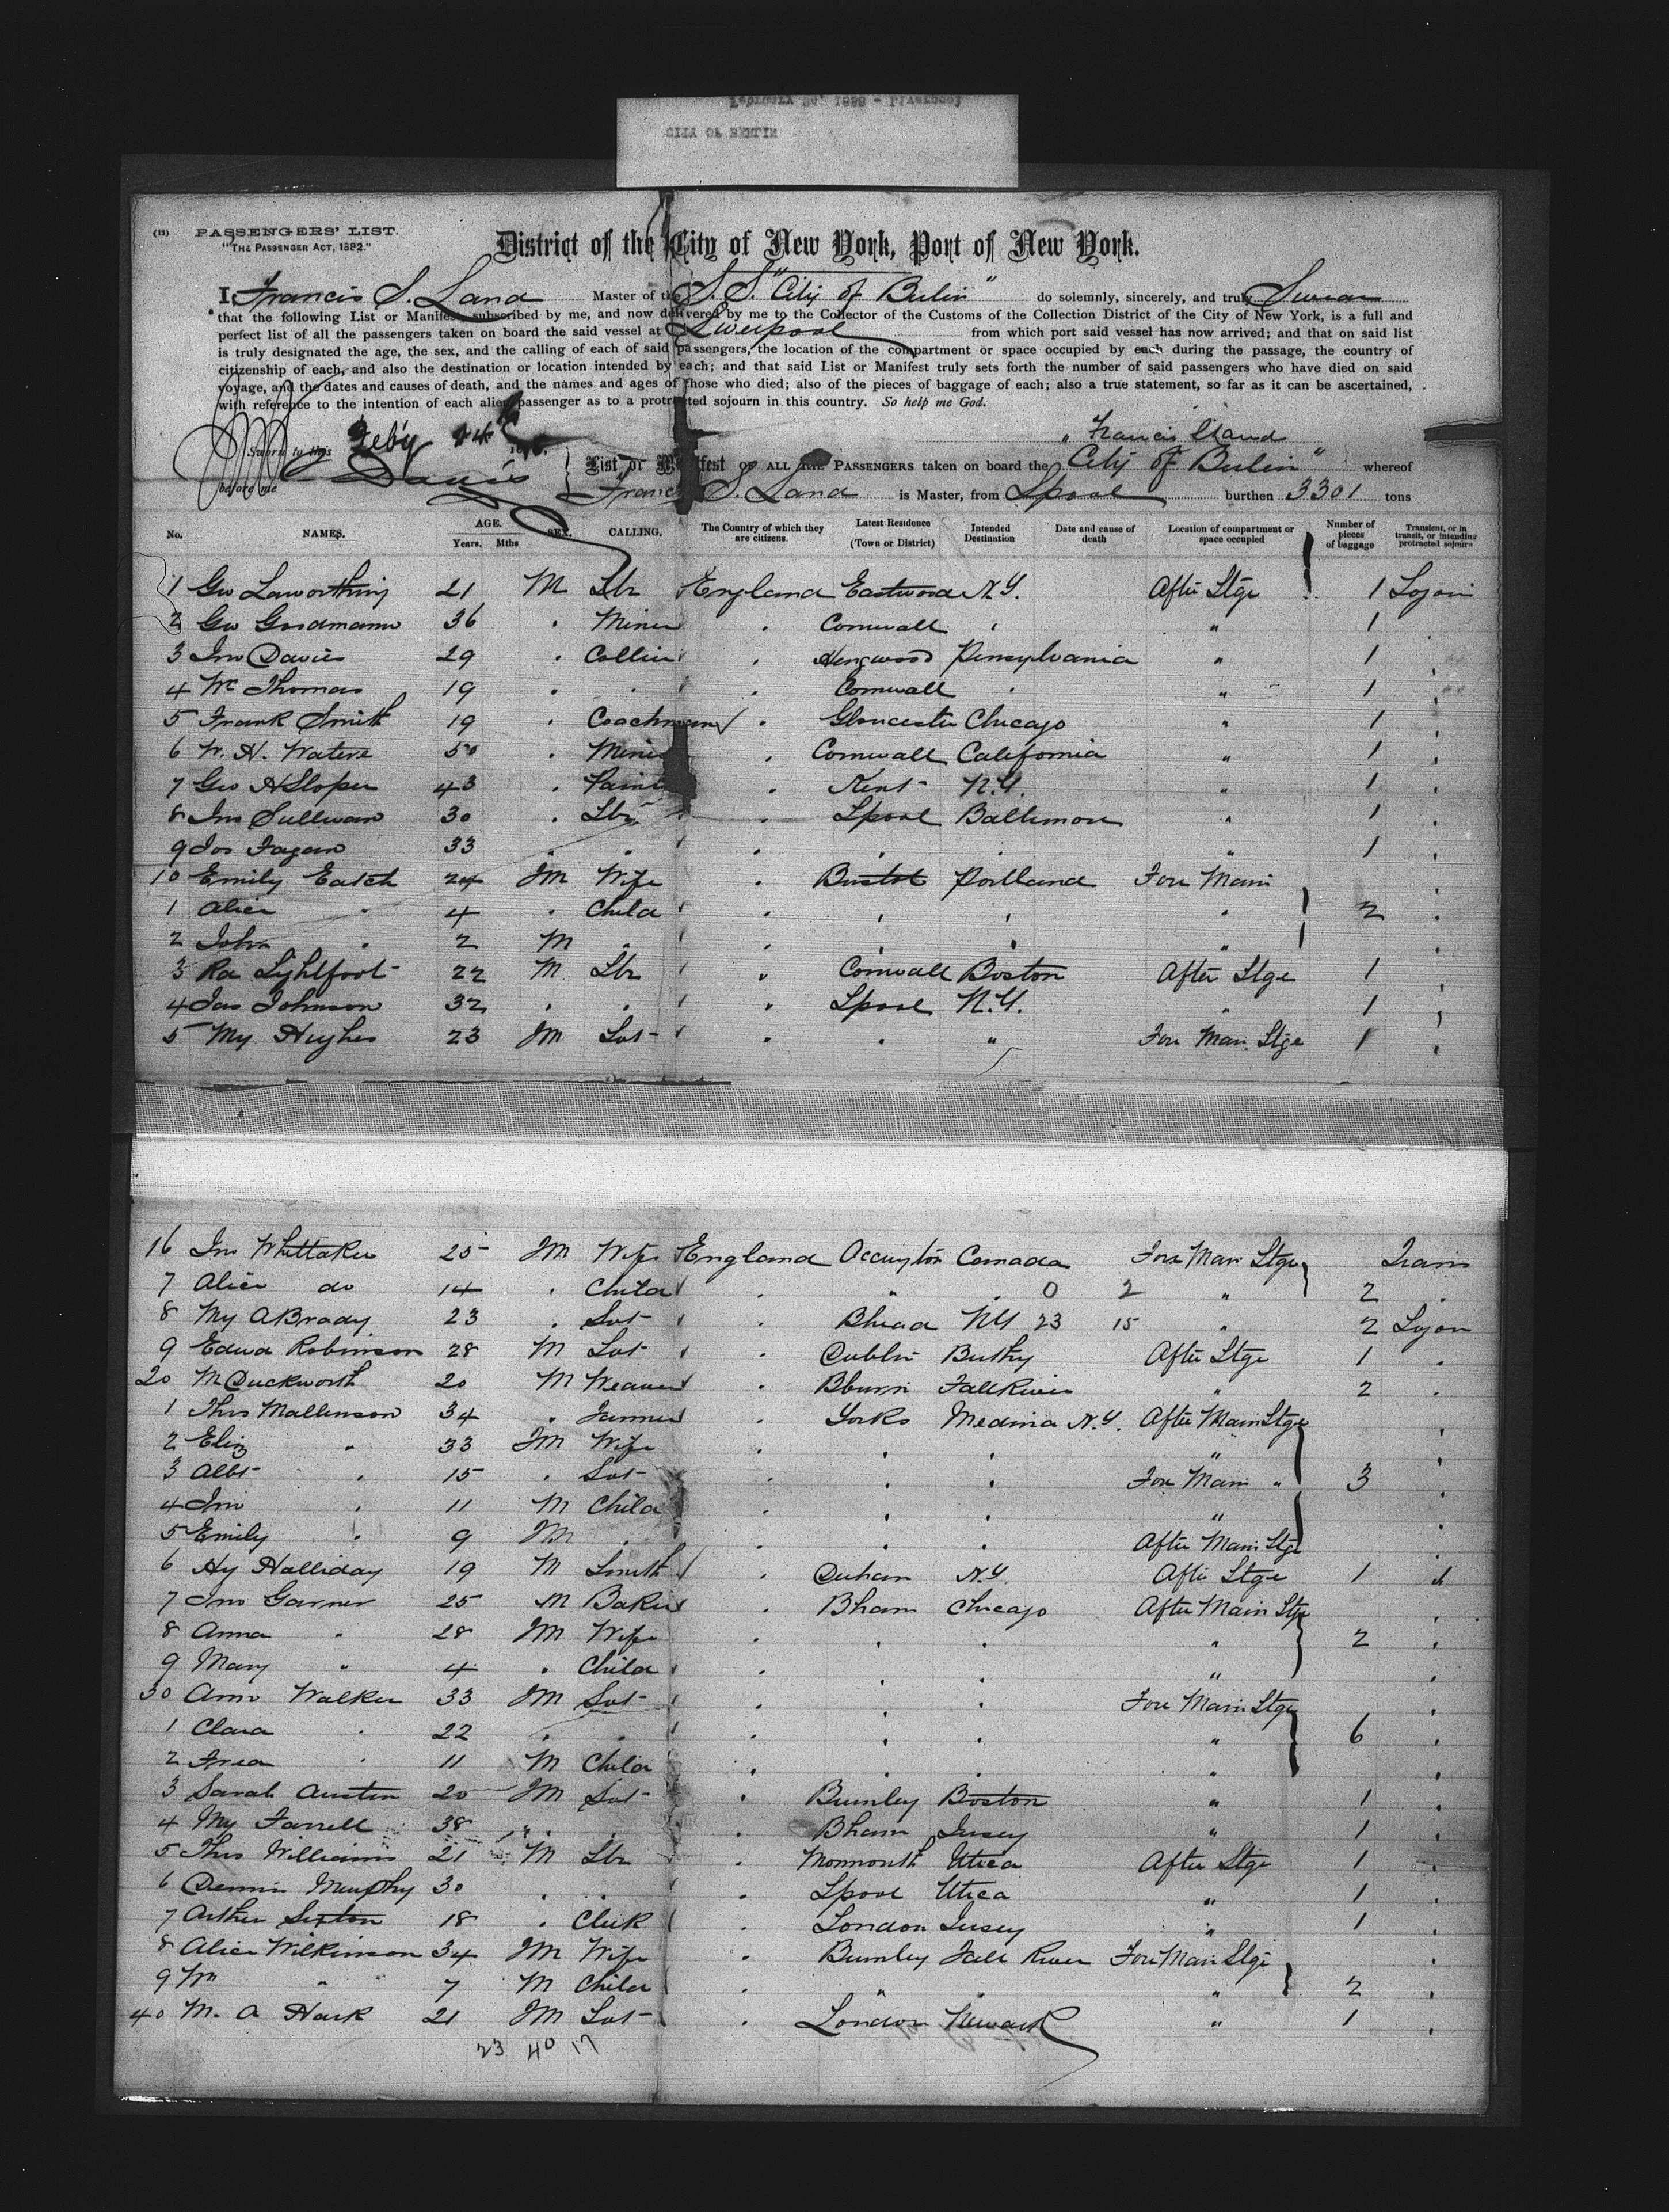 CITY OF BERLIN
(13) PASSENGERS' LIST.
"THE PASSENGER ACT, 1882."
District of the City of New York, Port of New York.
I, Francis S. Land Master of the S. S. "City of Berlin" do solemnly, sincerely, and truly Swear
that the following List or Manifest, subscribed by me, and now delivered by me to the Collector of the Customs of the Collection District of the City of New York, is a full and
perfect list of all the passengers taken on board the said vessel at Liverpool from which port said vessel has now arrived; and that on said list
is truly designated the age, the sex, and the calling of each of said passengers, the location of the compartment or space occupied by each during the passage, the country of
citizenship of each, and also the destination or location intended by each; and that said List or Manifest truly sets forth the number of said passengers who have died on said
voyage, and the dates and causes of death, and the names and ages of those who died; also of the pieces of baggage of each; also a true statement, so far as it can be ascertained,
with reference to the intention of each alien passenger as to a protracted sojourn in this country. So help me God.
Sworn to this Feby 24 Francis S Land
before me Davis
List or Manifest OF ALL THE PASSENGERS taken on board the "City of Berlin" whereof
Francis S. Land is Master, from Lpool burthen 3301 tons
No. NAMES. AGE. Years. Mths SEX. CALLING. The Country of which they are citizens. Latest Residence (Town or District) Intended Destination Date and cause of death Location of compartment or space occupied Number of pieces of baggage Transient, or in transit, or intending protracted sojourn
1 Geo 21 M Lbr England Eastwood N.Y. After Stge 1 Sojon
2 Geo Goodmann 36 " Miner " Cornwall " " 1
3 Jno Davies 29 " Collier " Pensylvania " 1 "
4 Wm Thomas 19 " " " Cornwall " " 1 "
5 Frank Smith 19 " Coachman " Gloucester Chicago " 1 "
6 W. H. Waters 50 " Miner " Cornwall California " 1 "
7 Geo H Sloper 43 " Paint " Kent N.Y. " 1 "
8 Jno Sullivan 30 " Lbr " Lpool Baltimore " 1 "
9 Jos Fagan 33 " " " " " " 1 "
10 Emily Eatch 24 Fm Wife " Bristol Portland Fore Main
1 Alice " 4 " Child " " " " 2 "
2 John " 2 M " " " " " "
3 Ra Lightfoot 22 M Lbr " Cornwall Boston After Stge 1 "
4 Jas Johnson 32 " " " Lpool N.Y. " 1 "
5 My Hughes 23 Fm Svt " " " Fore Main Stge 1 "
16 Jno Whittaker 25 Fm Wife England Accrington Canada Fore Main Stge Trans
7 Alice do 14 " Child " " " 0 2 " 2 "
8 My A Brady 23 " Svt " Bhead NY 23 15 " 2 Sojon
9 Edwd Robinson 28 M Svt " Dublin After Stge 1 "
20 M Duckworth 20 M Weaver " Bburn Fall River " 2 "
1 Thos Mallinson 34 " Farmer " Yorks Medina N.Y. After Main Stge "
2 Eliz " 33 Fm Wife " " " " "
3 Albt " 15 " Svt " " " Fore Main " 3 "
4 Jno " 11 M Child " " " " "
5 Emily " 9 Fm " " " " After Main Stge
6 Hy Halliday 19 M Smith " Durham N.Y. After Stge 1 "
7 Jno Garner 25 M Baker " Bham Chicago After Main Stge "
8 Anna " 28 Fm Wife " " " " 2 "
9 Mary " 4 " Child " " " " "
30 Ann Walker 33 Fm Svt " " " Fore Main Stge "
1 Clara " 22 " " " " " " 6 "
2 Fred " 11 M Child " " " " "
3 Sarah Austin 20 Fm Svt " Burnley Boston " 1 "
4 My Farrell 38 " " " Bham Jersey " 1 "
5 Thos Williams 21 M Lbr " Monmouth Utica After Stge 1 "
6 Dennis Murphy 30 " " " Lpool Utica " 1 "
7 Arthur Sexton 18 " Clerk " London Jersey " 1 "
8 Alice Wilkinson 34 Fm Wife " Burnley Fall River Fore Main Stge "
9 Wm " 7 M Child " " " " 2 "
40 M. A Hark 21 Fm Svt " London Newark " 1 "
23 40 17